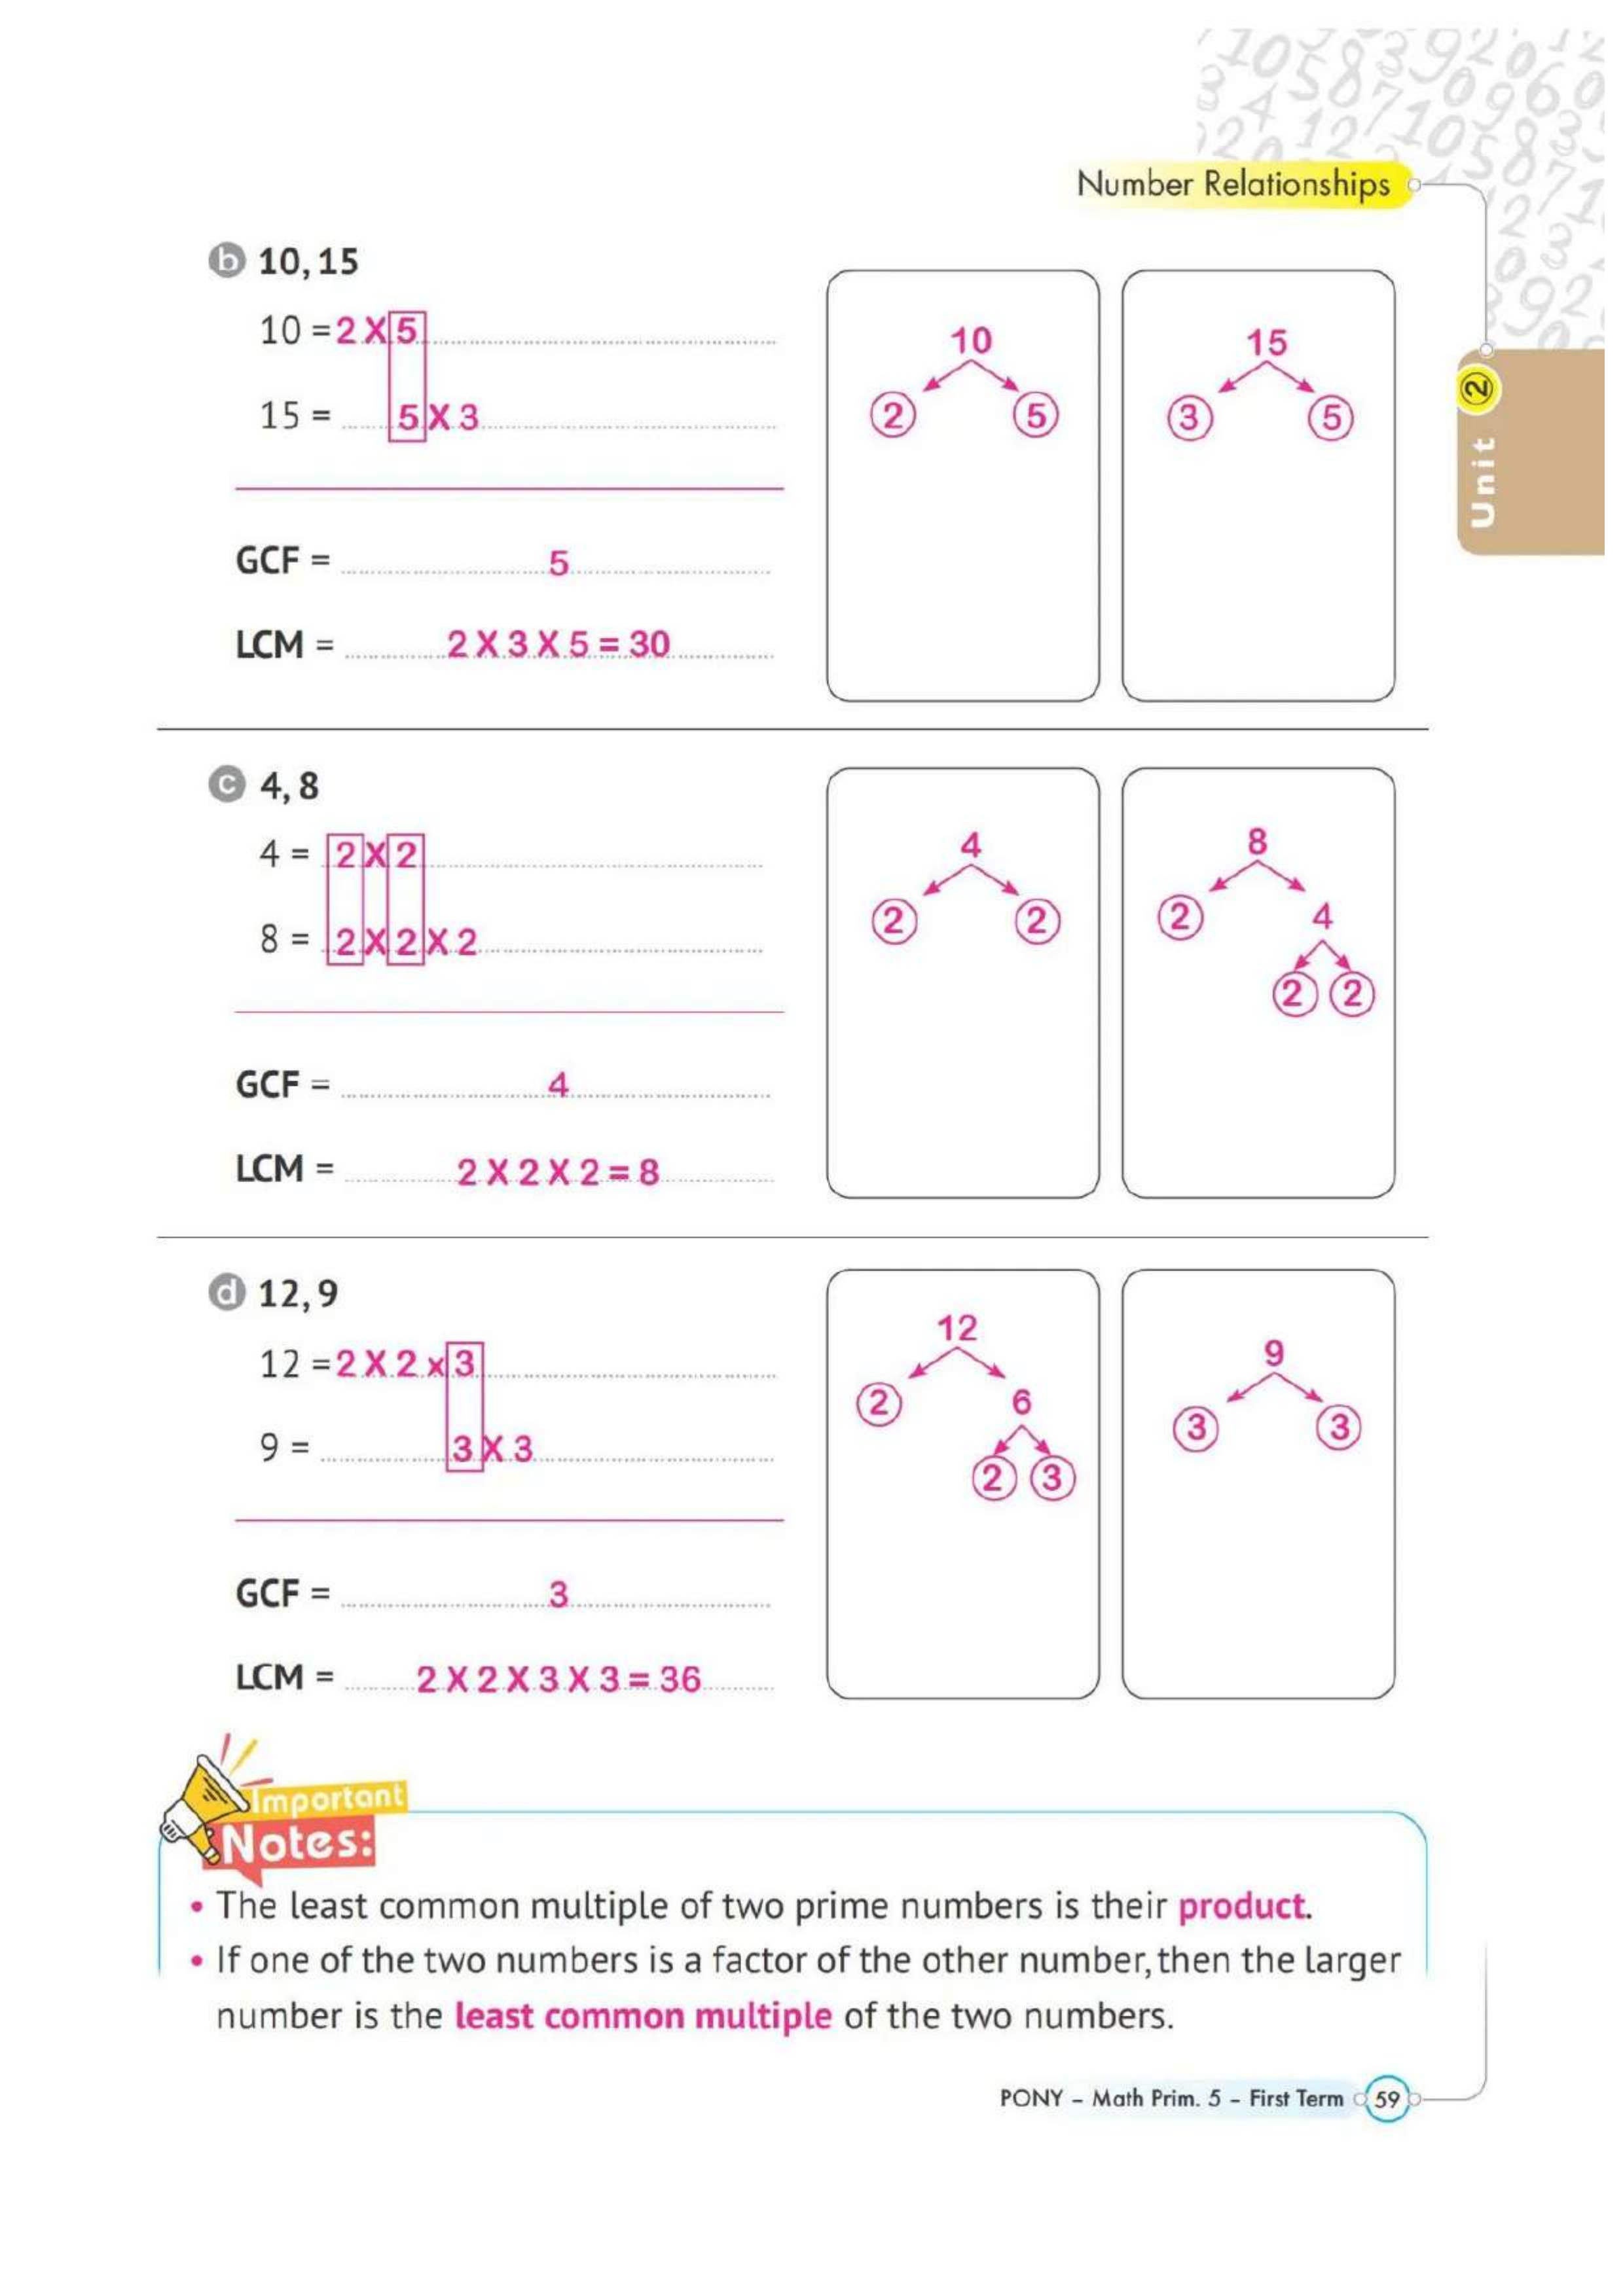 Number Relationships
Unit 2
b 10, 15
10 = 2 X 5
15 = 5 X 3
GCF = 5
LCM = 2 X 3 X 5 = 30
10
2 5
15
3 5
c 4, 8
4 = 2 X 2
8 = 2 X 2 X 2
GCF = 4
LCM = 2 X 2 X 2 = 8
4
2 2
8
2 4
2 2
d 12, 9
12 = 2 X 2 x 3
9 = 3 X 3
GCF = 3
LCM = 2 X 2 X 3 X 3 = 36
12
2 6
2 3
9
3 3
Important
Notes:
• The least common multiple of two prime numbers is their product.
• If one of the two numbers is a factor of the other number, then the larger
number is the least common multiple of the two numbers.
PONY – Math Prim. 5 – First Term 59